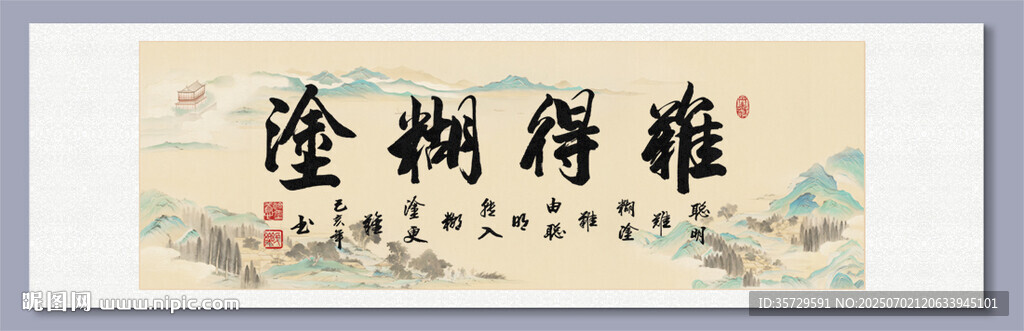 難得糊塗
聪明
難
糊塗
難
由聪
明
入
糊
塗更
難
己亥年
书
昵图网 www.nipic.com
ID:35729591 NO:20250702120633945101